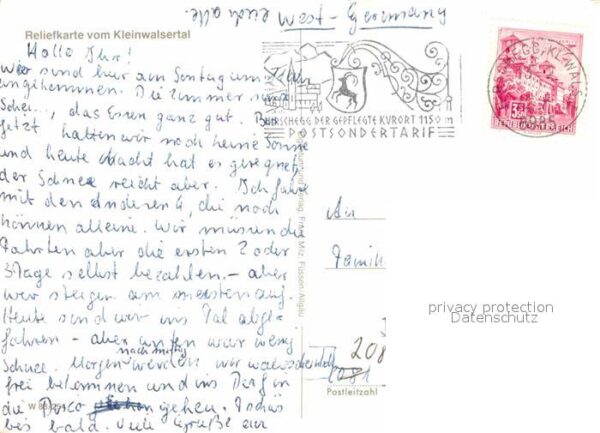 Reliefkarte vom Kleinwalsertal
euch alle.
West-Germany
Hallo Ihr!
wir sind hier am Sonntag um
angekommen. Die Zimmer sind
, das Essen ganz gut. Bis
jetzt hatten wir noch keine Sonne
und heute Nacht hat es geregnet,
der Schnee reicht aber. Ich fahre
mit den anderen 4, die noch
können alleine. Wir müssen die
Fahrten aber die ersten 2 oder
3 Tage selbst bezahlen. – aber
wir steigen am meisten auf.
Heute sind wir ins Tal abge-
fahren – aber unten war wenig
Schnee. Morgen nachmittag werden wir
frei bekommen und ins Dorf in
die Disco gehen. Tschüs
bis bald. Viele Grüße an
HIRSCHEGG DER GEPFLEGTE KURORT 1150 m
POSTSONDERTARIF
REPUBLIK ÖSTERREICH
6985
An
Famili
208
Postleitzahl
Franz Milz, Füssen/Allgäu
privacy protection
Datenschutz